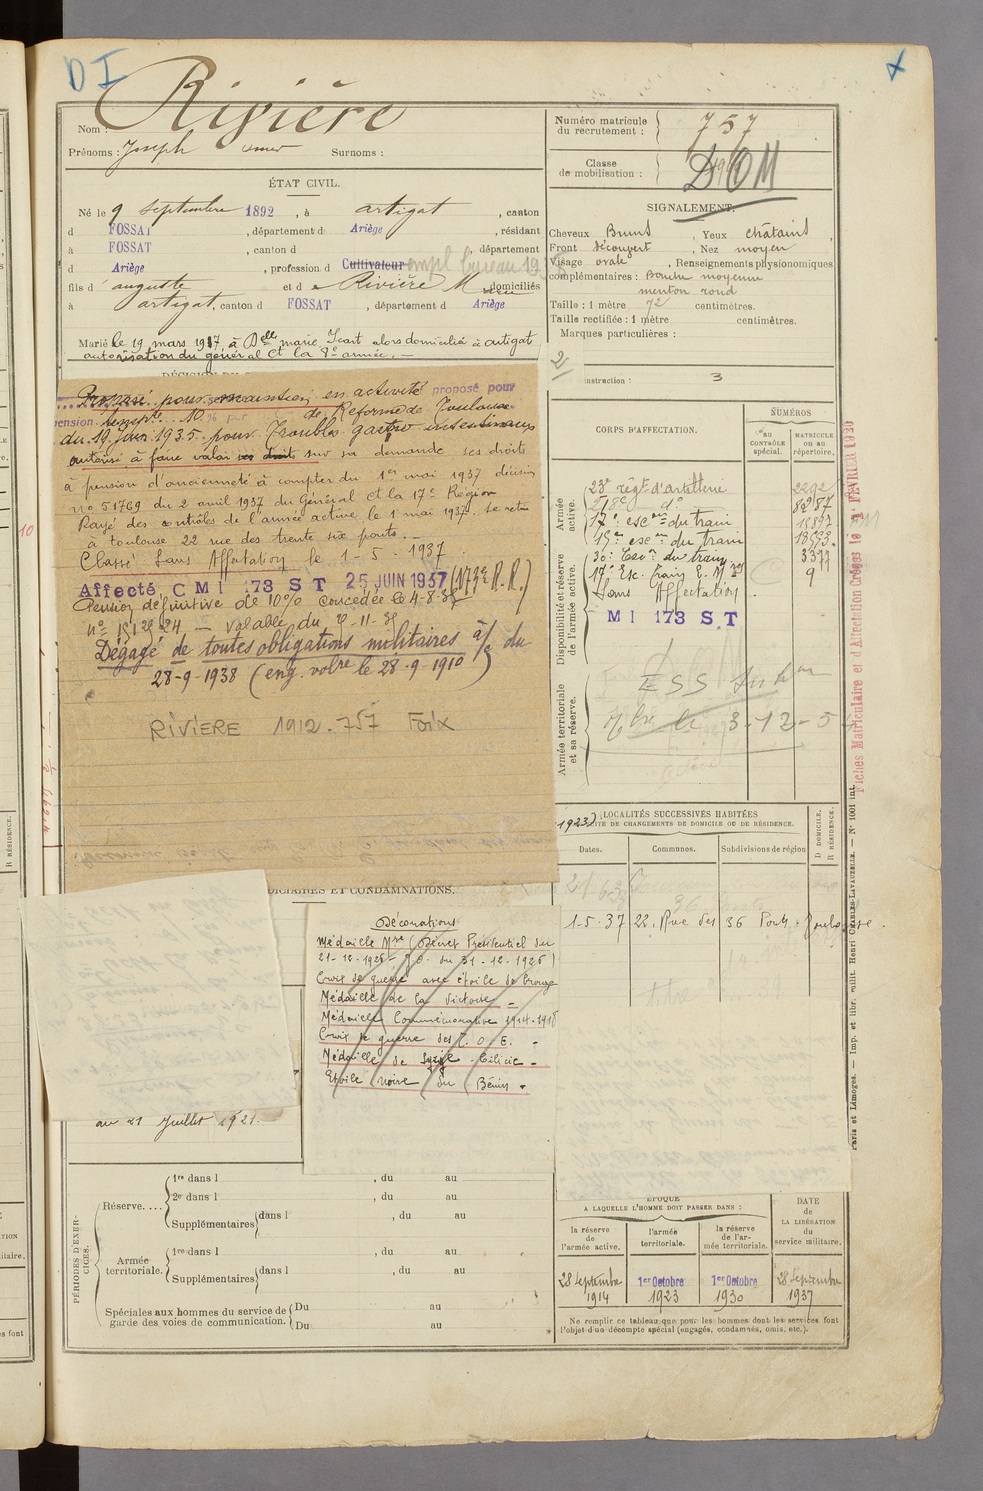 D I
Rivière
Nom :
Prénoms : Joseph Surnoms :
ÉTAT CIVIL.
Né le 9 septembre 1892, à artigat, canton
d FOSSAT, département d Ariège, résidant
à FOSSAT, canton d , département
d Ariège, profession d Cultivateur empl bureau
fils d' auguste et de Rivière Marie domiciliés
à artigat, canton d FOSSAT, département d Ariège
Marié le 19 mars 1917 à Delle marie Icart alors domiciliée à artigat
autorisation du général Ct la 8e année. —
Proposé pour pension en activité proposé pour
pension 10 % de Réforme de Toulouse
du 19 Juin 1935 pour Troubles gastro intestinaux
autorisé à faire valoir ses droits sur sa demande ses droits
à pension d'ancienneté à compter du 1er mai 1937 décision
no 51769 du 2 avril 1937 du Général Ct la 17e Région
Rayé des contrôles de l'armée active le 1 mai 1937. Se retire
à toulouse 22 rue des trente six ponts.
Classé Sans Affectation le 1-5-1937
Affecté C M I 173 S T 25 JUIN 1937 (173e R.R.)
Pension définitive de 10% concédée le 4-8-35
valable du
Dégagé de toutes obligations militaires à/c du
28-9-1938 (eng. volre le 28-9-1910)
RIVIERE 1912.757 Foix
DICIAIRES ET CONDAMNATIONS.
Décorations
Médaille Mre (Décret Présidentiel du
21-12-1926 J.O. du 31-12-1926)
Croix de guerre avec étoile de bronze
Médaille de la Victoire —
Médaille Commémorative 1914-1918
Croix de guerre des T.O.E. -
Médaille de Syrie - Cilicie -
Etoile noire du Bénin -
au 21 Juillet 1921.
PÉRIODES D'EXERCICES.
Réserve....
1re dans l , du au
2e dans l , du au
Supplémentaires dans l , du au
du au
Armée territoriale.
1re dans l , du au
Supplémentaires dans l , du au
du au
Spéciales aux hommes du service de garde des voies de communication.
Du au
Du au
Numéro matricule du recrutement : 757
Classe de mobilisation :
DOM
SIGNALEMENT.
Cheveux Bruns, Yeux châtains,
Front découvert, Nez moyen
Visage ovale, Renseignements physionomiques
complémentaires : Bouche moyenne
menton rond
Taille : 1 mètre 72 centimètres.
Taille rectifiée : 1 mètre centimètres.
Marques particulières :
2
instruction : 3
CORPS D'AFFECTATION.
NUMÉROS
AU CONTRÔLE SPÉCIAL.
MATRICULE OU AU RÉPERTOIRE.
Armée active.
Disponibilité et réserve de l'armée active.
Armée territoriale et sa réserve.
23e régt d'artillerie 2292
218e do 8287
17e escon du train 15897
15e escon du train 18593
30e Escon du train 3377
17e Esc. train E. Mres 9
Sans Affectation
M I 173 S.T
E S S
3-12-54
Fiches Matriculaire et d'Affectation Créées le FÉVRIER 1930
LOCALITÉS SUCCESSIVES HABITÉES
SUITE DE CHANGEMENTS DE DOMICILE OU DE RÉSIDENCE.
Dates. Communes. Subdivisions de région D DOMICILE. R RÉSIDENCE.
1-5-37 22. Rue des 36 Ponts. Toulouse.
Paris et Limoges. — Imp. et libr. milit. Henri CHARLES-LAVAUZELLE. — No 1001 int.
ÉPOQUE
A LAQUELLE L'HOMME DOIT PASSER DANS :
la réserve de l'armée active.
l'armée territoriale.
la réserve de l'armée territoriale.
DATE de LA LIBÉRATION du service militaire.
28 Septembre 1914
1er Octobre 1923
1er Octobre 1930
28 Septembre 1937
Ne remplir ce tableau que pour les hommes dont les services font
l'objet d'un décompte spécial (engagés, condamnés, omis, etc.).